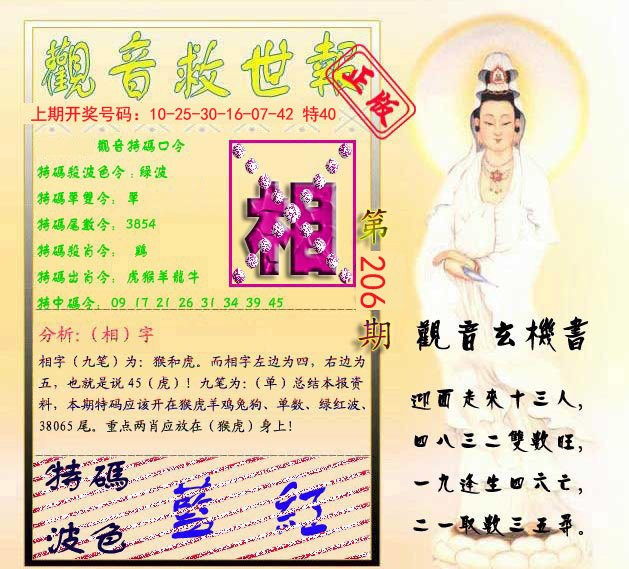 觀音救世報
正版
上期开奖号码：10-25-30-16-07-42 特40
觀音特碼口令
特碼殺波色令：绿波
特碼單雙令：單
特碼尾數令：3854
特碼殺肖令： 鷄
特碼出肖令：虎猴羊龍牛
特中碼令：09 17 21 26 31 34 39 45
相
第206期
分析:（相）字
相字（九笔）为：猴和虎。而相字左边为四，右边为
五，也就是说 45（虎）！九笔为：（单）总结本报资
料，本期特码应该开在猴虎羊鸡兔狗、单数、绿红波、
38065 尾。重点两肖应放在（猴虎）身上！
特碼
波色
藍 紅
觀音玄機書
迎面走來十三人，
四八三二雙數旺，
一九逢生四六亡，
二一取數三五尋。